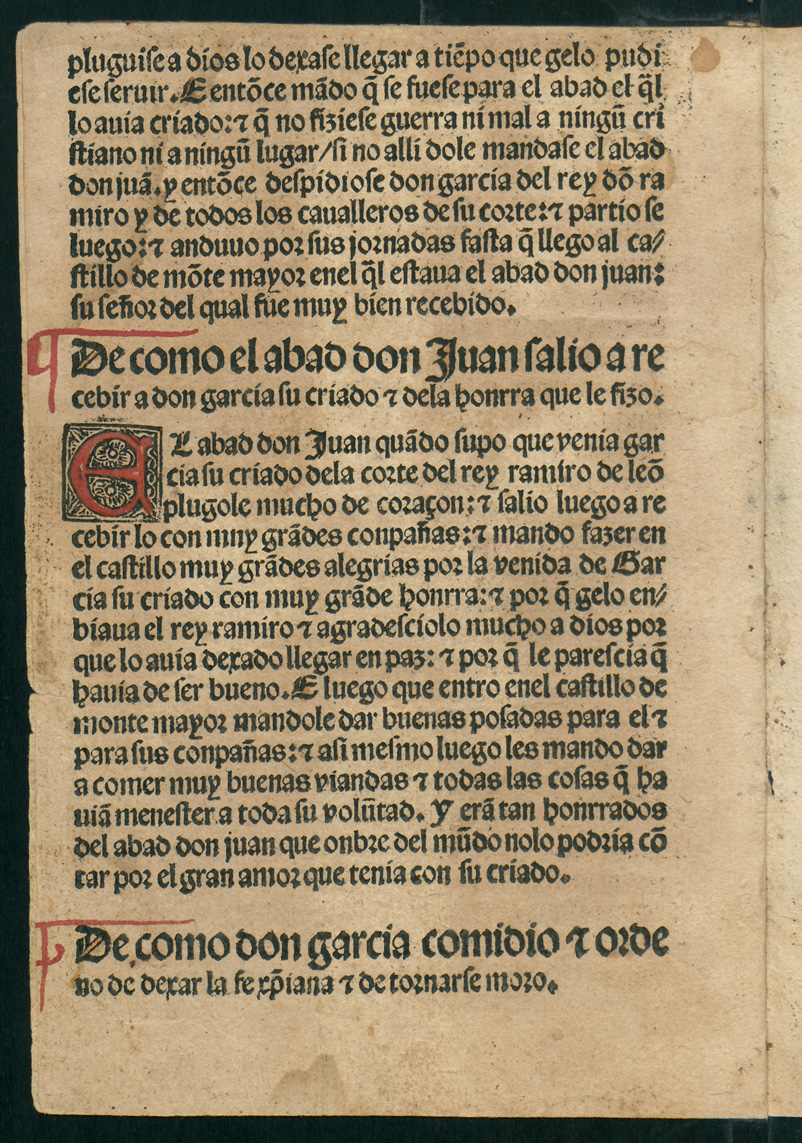 pluguiſe a dios lo dexaſe llegar a tiẽpo que gelo pudi
eſe ſeruir. E entõce mãdo q̃ ſe fueſe para el abad el q̃l
lo auia criado: ⁊ q̃ no fizieſe guerra ni mal a ningũ cri
ſtiano ni a ningũ lugar/ſi no alli dole mandaſe el abad
don juã. y entõce deſpidioſe don garcia del rey dõ ra
miro y de todos los caualleros de ſu corte: ⁊ partio ſe
luego: ⁊ anduuo por ſus jornadas faſta q̃ llego al ca/
ſtillo de mõte mayor enel q̃l eſtaua el abad don juan:
ſu ſeñor del qual fue muy bien recebido.
¶ De como el abad don Juan ſalio a re
cebir a don garcia ſu criado ⁊ dela honrra que le fizo.
EL abad don Juan quãdo ſupo que venia gar
cia ſu criado dela corte del rey ramiro de leõ
plugole mucho de coraçon: ⁊ ſalio luego a re
cebir lo con muy grãdes conpañas: ⁊ mando fazer en
el caſtillo muy grãdes alegrias por la venida de Gar
cia ſu criado con muy grãde honrra: ⁊ por q̃ gelo en/
biaua el rey ramiro ⁊ agradeſciolo mucho a dios por
que lo auia dexado llegar en paz: ⁊ por q̃ le pareſcia q̃
hauia de ſer bueno. E luego que entro enel caſtillo de
monte mayor mandole dar buenas poſadas para el ⁊
para ſus conpañas: ⁊ aſi meſmo luego les mando dar
a comer muy buenas viandas ⁊ todas las coſas q̃ ha
uiã meneſter a toda ſu volũtad. Y erã tan honrrados
del abad don juan que onbre del mũdo nolo podria cõ
tar por el gran amor que tenia con ſu criado.
¶ De como don garcia comidio ⁊ orde
no de dexar la fe xp̃iana ⁊ de tornarſe moro.